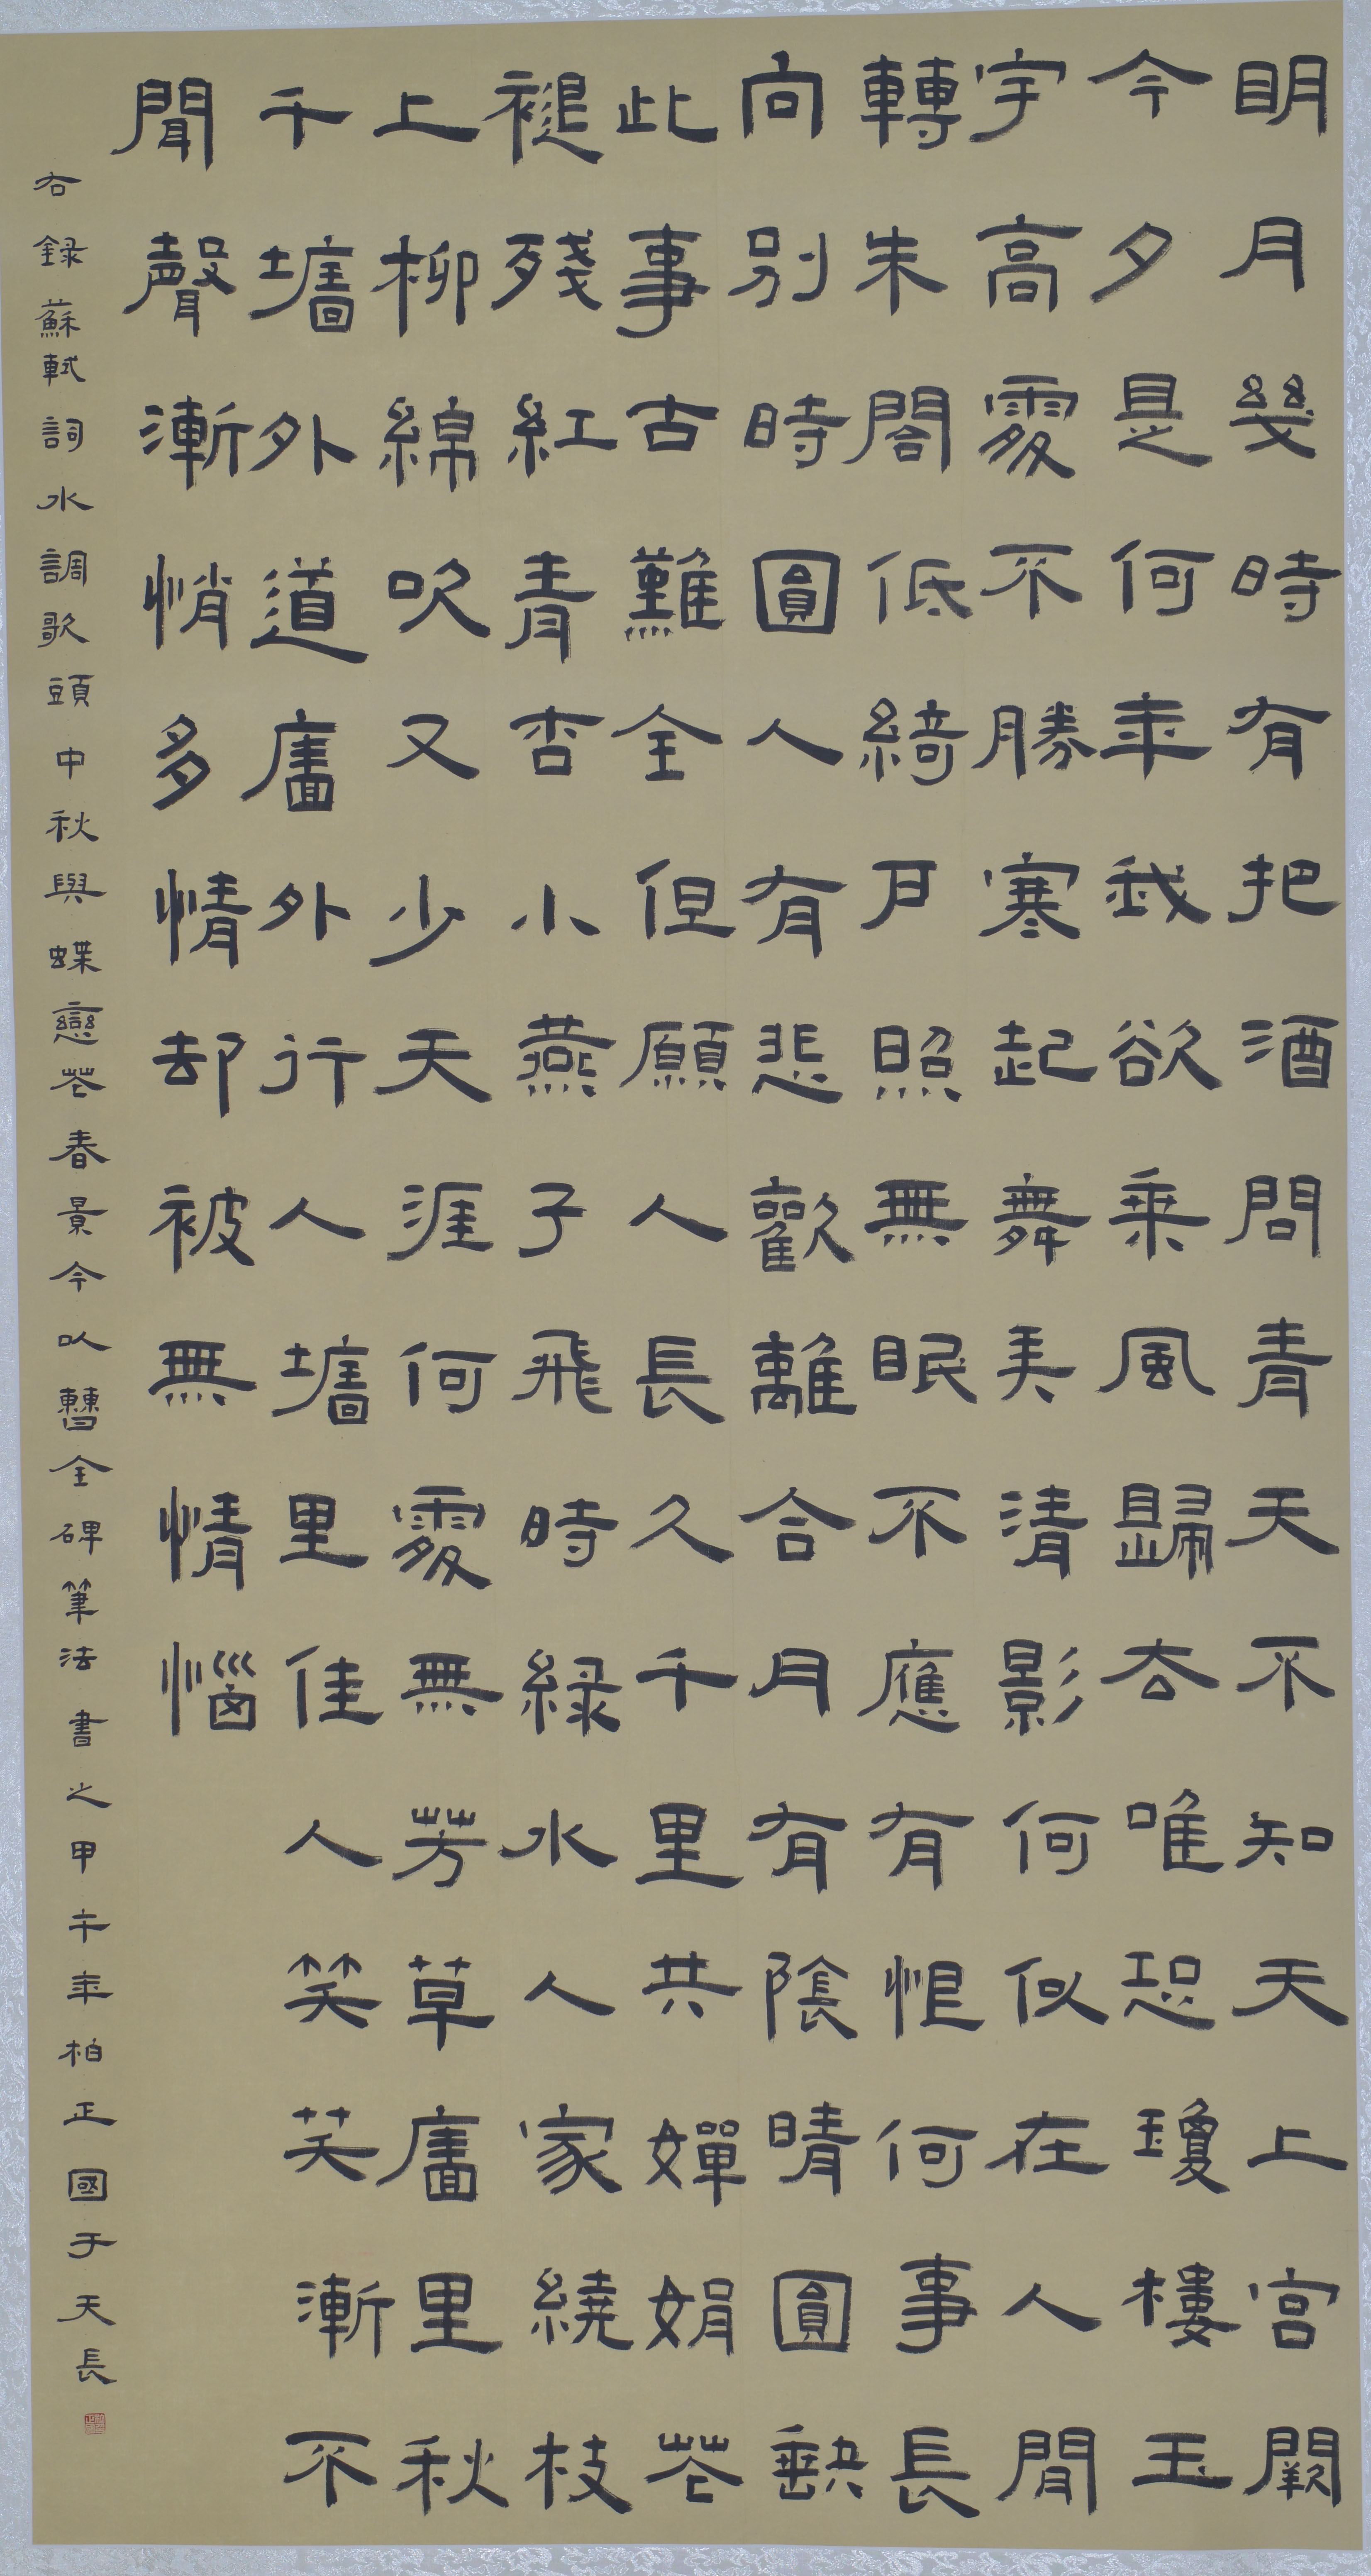 明月幾時有把酒問青天不知天上宮闕
今夕是何年我欲乘風歸去唯恐瓊樓玉
宇高處不勝寒起舞美清影何似在人間
轉朱閣低綺戶照無眠不應有恨何事長
向別時圓人有悲歡離合月有陰晴圓缺
此事古難全但願人長久千里共嬋娟花
褪殘紅青杏小燕子飛時綠水人家繞枝
上柳綿吹又少天涯何處無芳草廧里秋
千墻外道廧外行人墻里佳人笑笑漸不
聞聲漸悄多情却被無情惱
右録蘇軾詞水調歌頭中秋與蝶戀花春景今以曹全碑筆法書之甲午年柏正國于天長